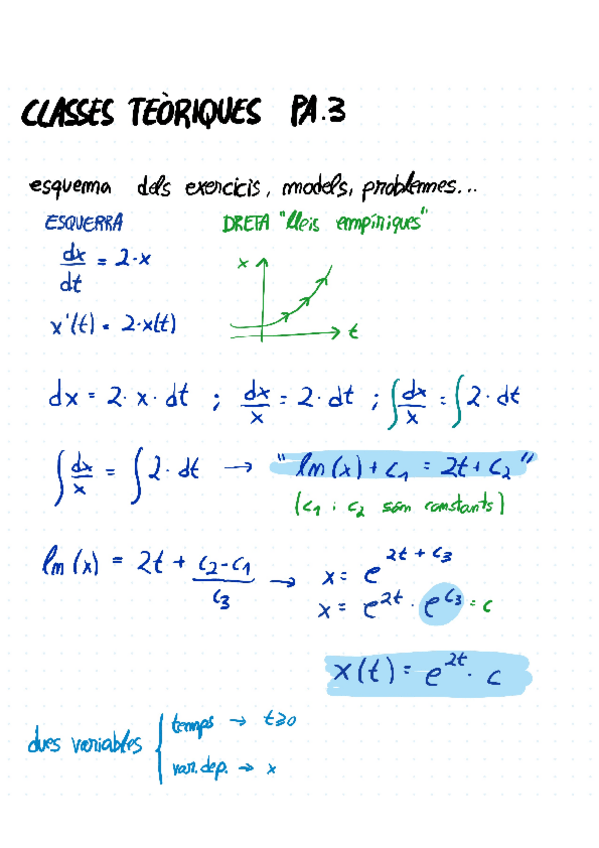 CLASSES TEÒRIQUES PA.3
esquema dels exercicis, models, problemes...
ESQUERRA DRETA "lleis empíriques"
dx/dt = 2·x
x
t
x'(t) = 2·x(t)
dx = 2·x·dt ; dx/x = 2·dt ; ∫dx/x = ∫2·dt
∫dx/x = ∫2·dt → "ln(x) + c₁ = 2t + c₂"
(c₁ i c₂ són constants)
ln(x) = 2t + c₂-c₁ → x = e^(2t + c₃)
c₃
x = e^(2t) · e^(c₃) = c
x(t) = e^(2t) · c
dues variables { temps → t≥0
var.dep. → x